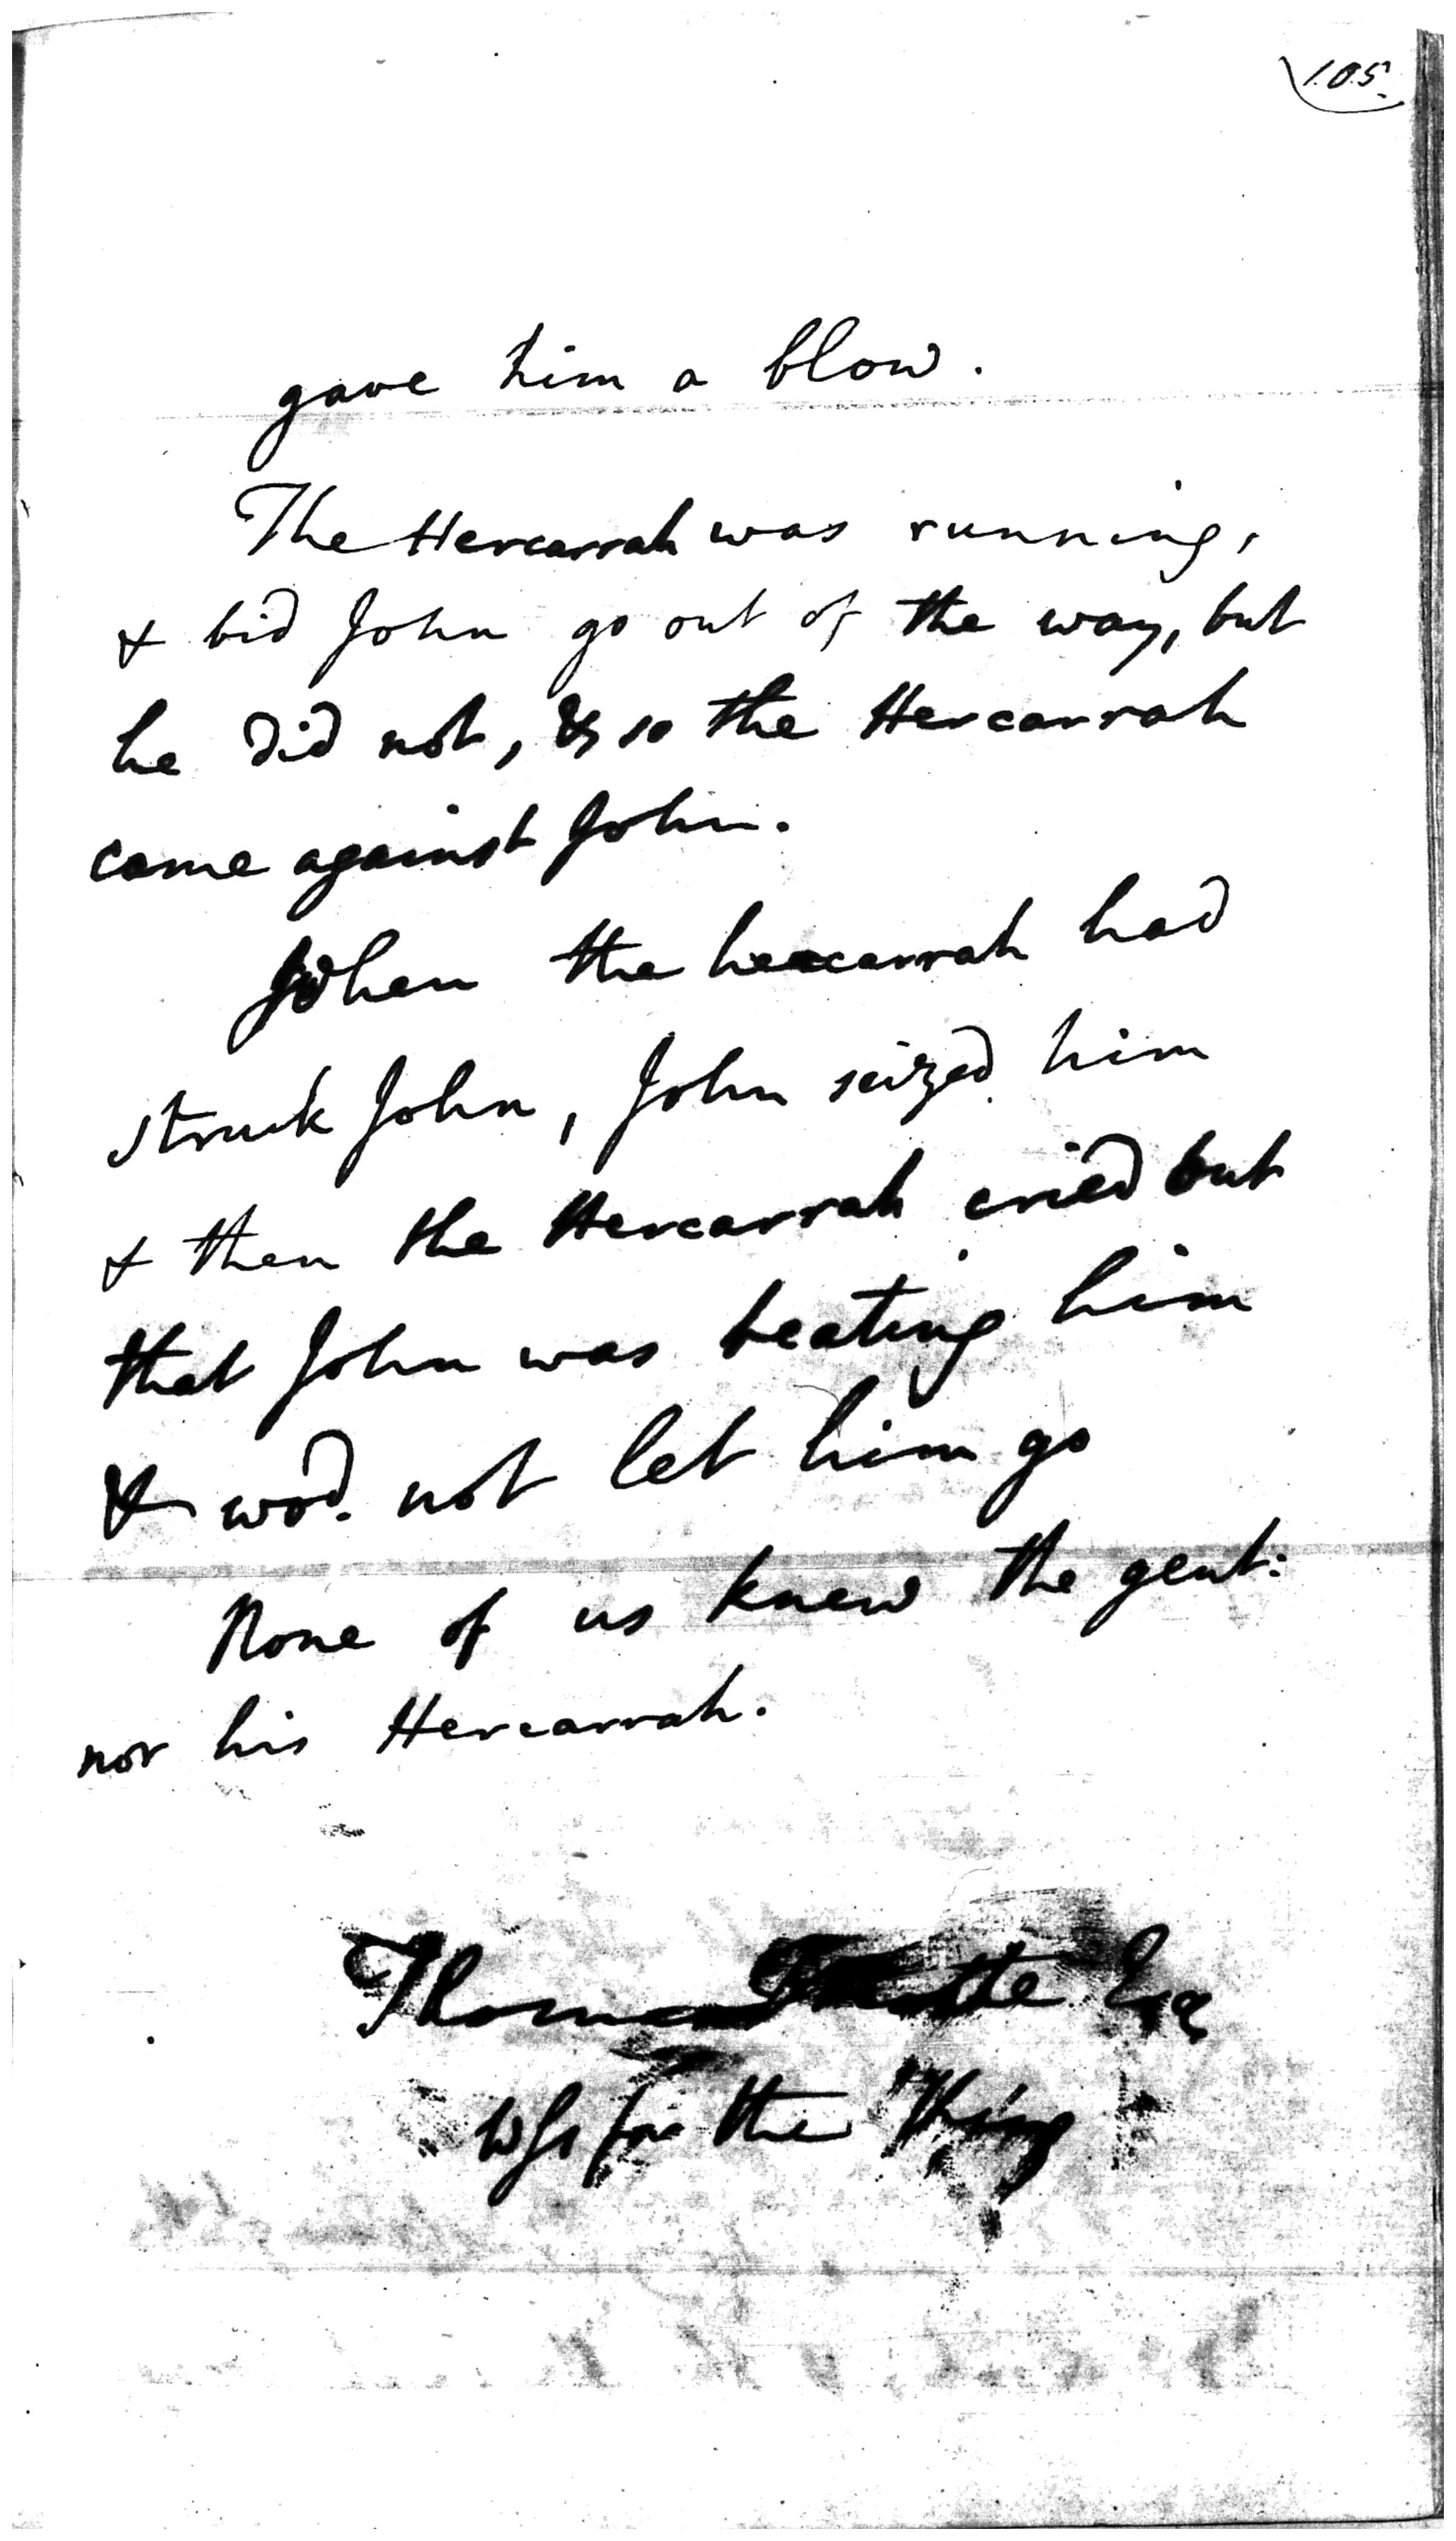 105.
gave him a blow.
The Hercarrah was running,
& bid John go out of the way, but
he did not, & so the Hercarrah
came against John.
When the hercarrah had
struck John, John seized him
& then the Hercarrah cried out
that John was beating him
& wod. not let him go
None of us knew the gent:
nor his Hercarrah.
Thomas Esq
for the King